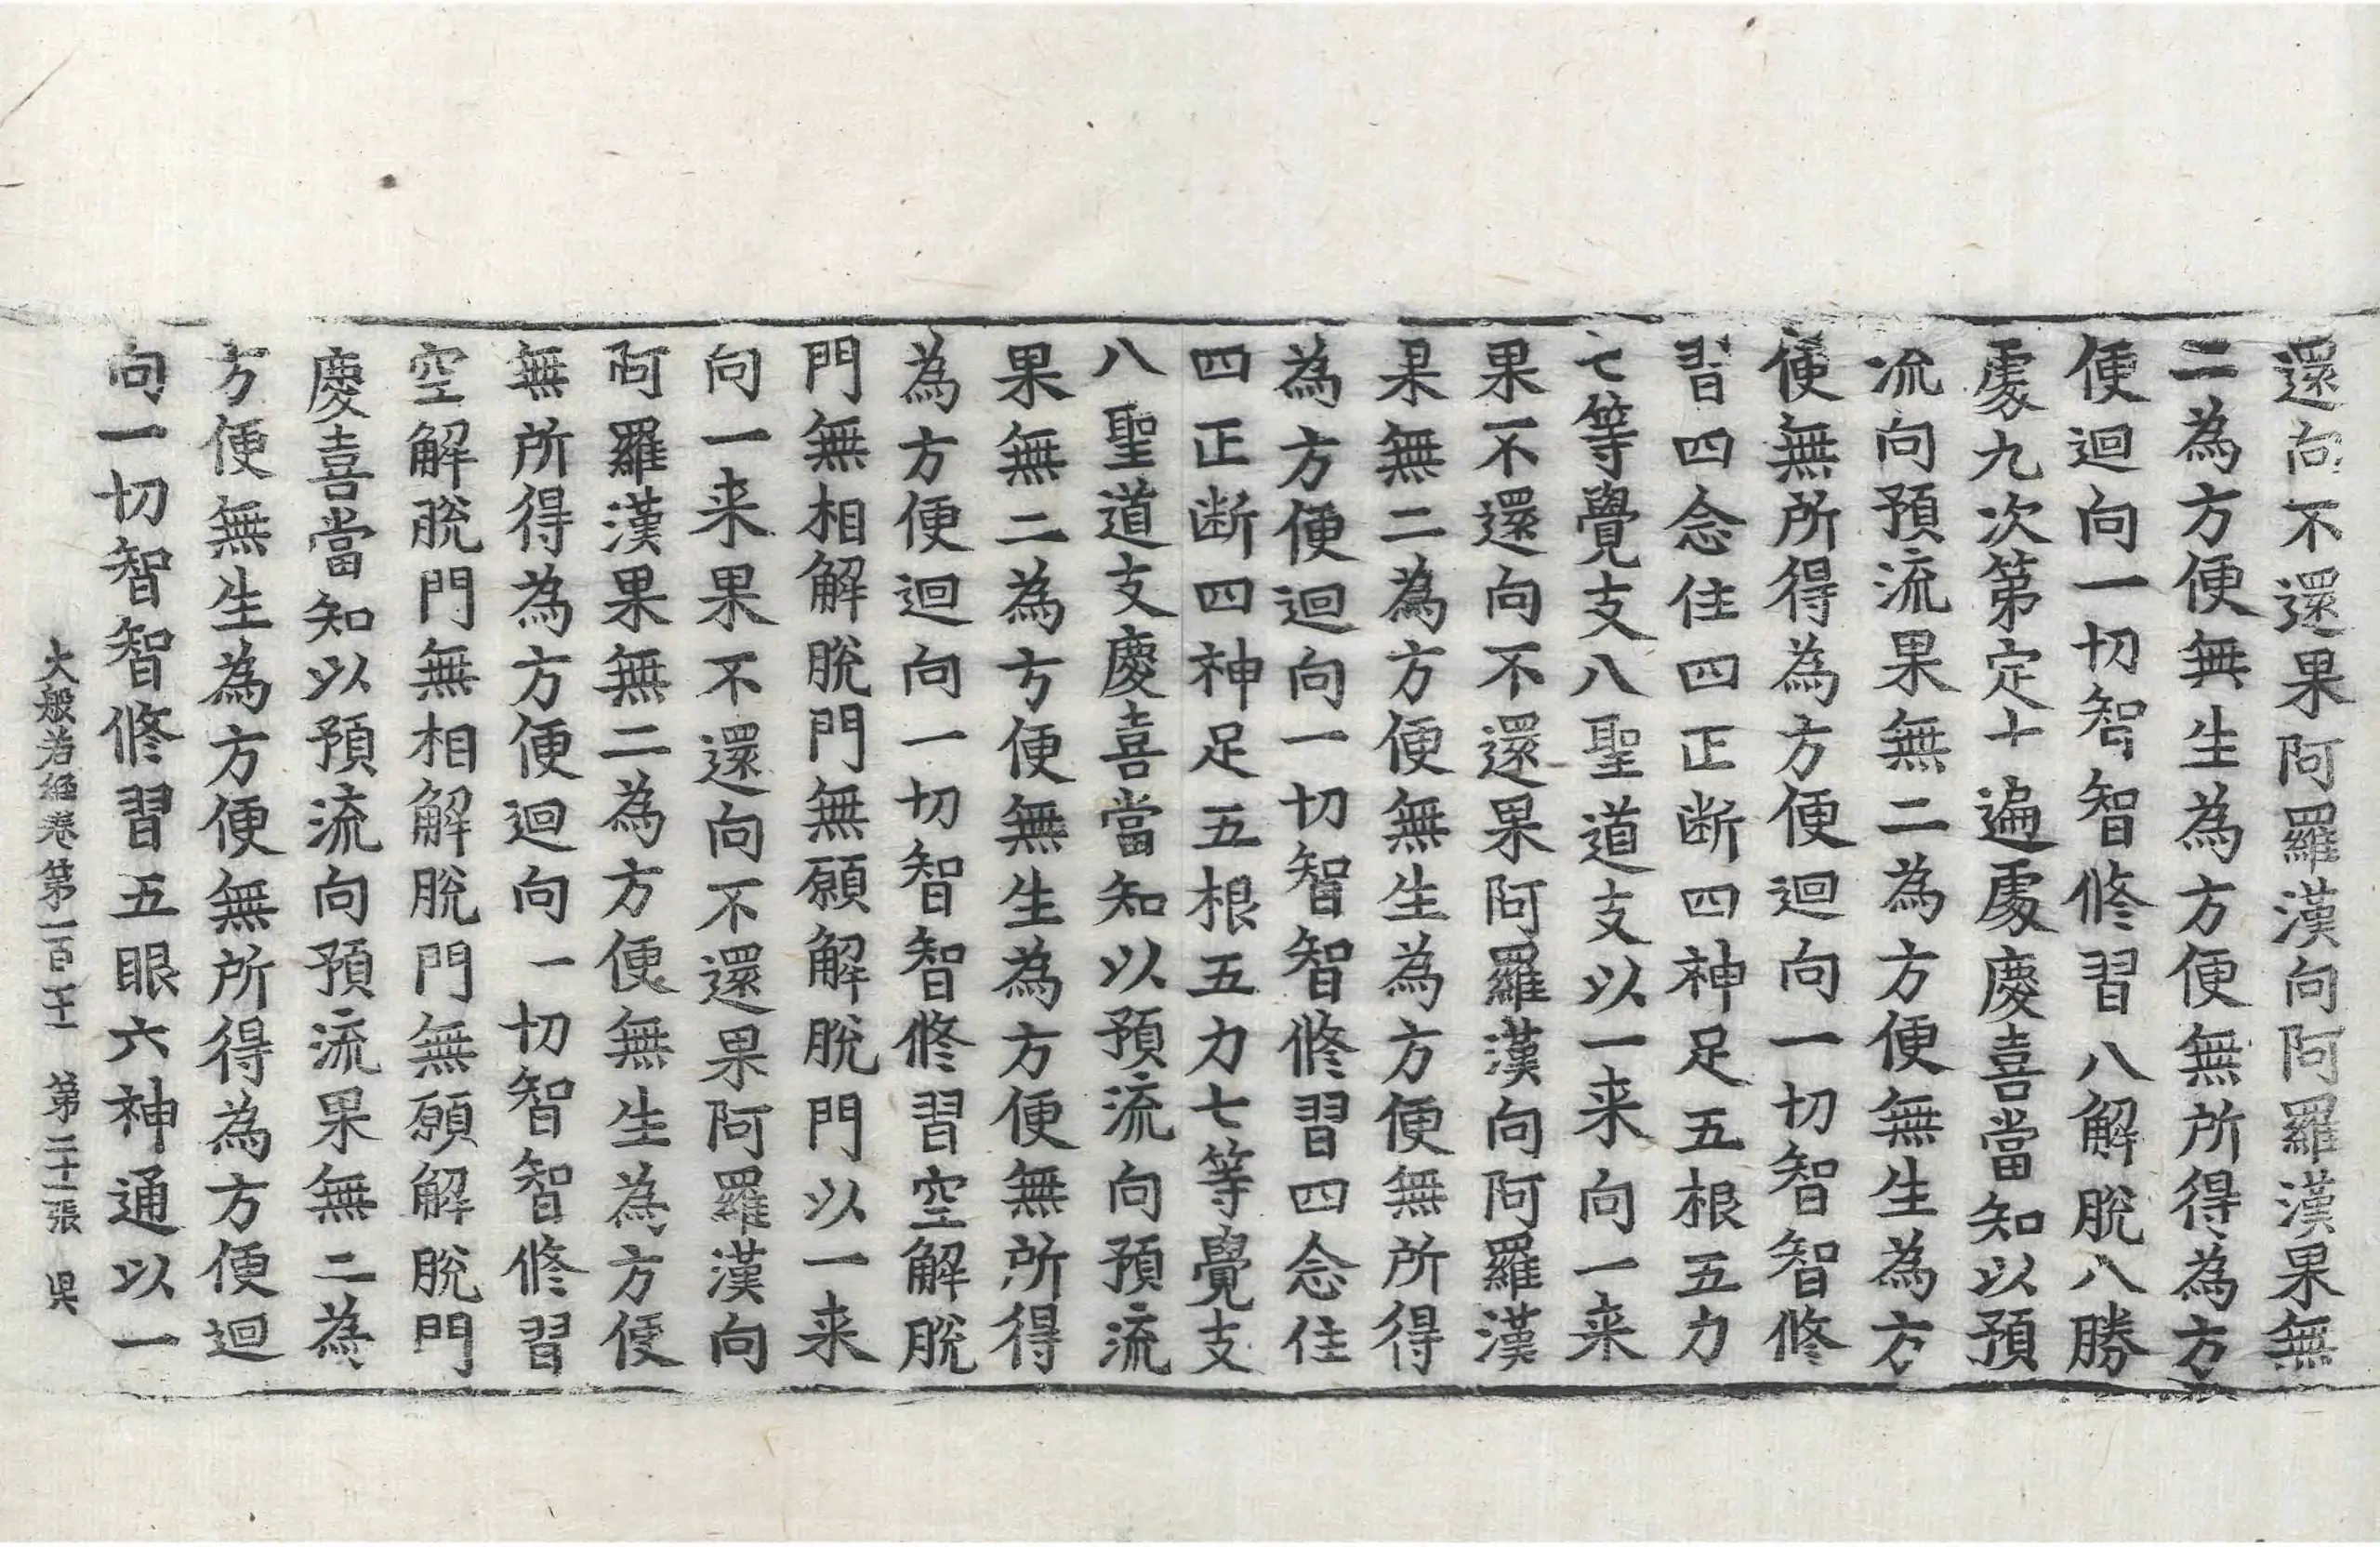 還向不還果阿羅漢向阿羅漢果無
二為方便無生為方便無所得為方
便迴向一切智智修習八解脫八勝
處九次第定十遍處慶喜當知以預
流向預流果無二為方便無生為方
便無所得為方便迴向一切智智修
習四念住四正断四神足五根五力
七等覺支八聖道支以一来向一来
果不還向不還果阿羅漢向阿羅漢
果無二為方便無生為方便無所得
為方便迴向一切智智修習四念住
四正断四神足五根五力七等覺支
八聖道支慶喜當知以預流向預流
果無二為方便無生為方便無所得
為方便迴向一切智智修習空解脫
門無相解脫門無願解脫門以一来
向一来果不還向不還果阿羅漢向
阿羅漢果無二為方便無生為方便
無所得為方便迴向一切智智修習
空解脫門無相解脫門無願解脫門
慶喜當知以預流向預流果無二為
方便無生為方便無所得為方便迴
向一切智智修習五眼六神通以一
大般若経卷第一百二十一 第二十二張 昃